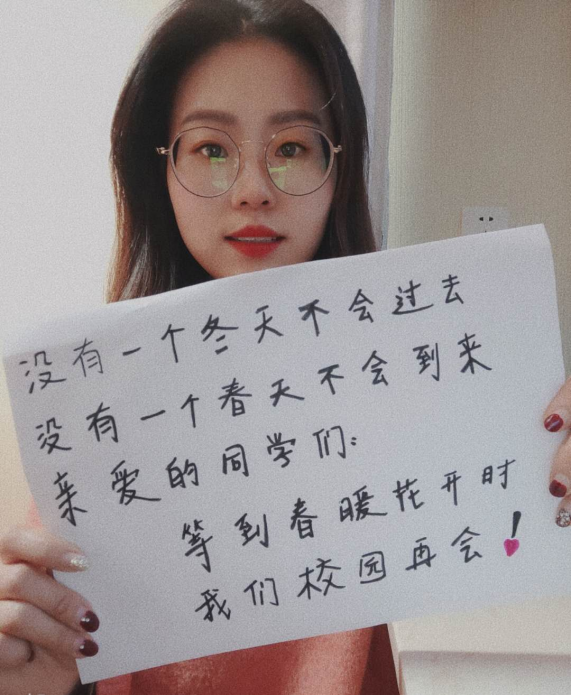 没有一个冬天不会过去
没有一个春天不会到来
亲爱的同学们:
等到春暖花开时
我们校园再会!